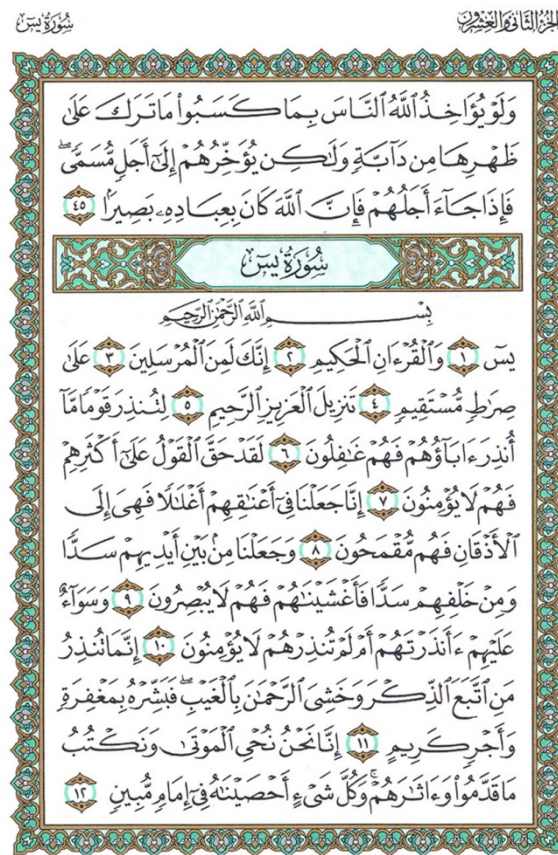 سُورَةُ يسٓ
الجُزْءُ الثَّانِي وَالعِشْرُونَ
وَلَوْ يُؤَاخِذُ ٱللَّهُ ٱلنَّاسَ بِمَا كَسَبُوا۟ مَا تَرَكَ عَلَىٰ
ظَهْرِهَا مِن دَآبَّةٍ وَلَٰكِن يُؤَخِّرُهُمْ إِلَىٰٓ أَجَلٍ مُّسَمًّى ۖ
فَإِذَا جَآءَ أَجَلُهُمْ فَإِنَّ ٱللَّهَ كَانَ بِعِبَادِهِۦ بَصِيرًۢا ٤٥
سُورَةُ يسٓ
بِسْمِ ٱللَّهِ ٱلرَّحْمَٰنِ ٱلرَّحِيمِ
يسٓ ١ وَٱلْقُرْءَانِ ٱلْحَكِيمِ ٢ إِنَّكَ لَمِنَ ٱلْمُرْسَلِينَ ٣ عَلَىٰ
صِرَٰطٍ مُّسْتَقِيمٍ ٤ تَنزِيلَ ٱلْعَزِيزِ ٱلرَّحِيمِ ٥ لِتُنذِرَ قَوْمًا مَّآ
أُنذِرَ ءَابَآؤُهُمْ فَهُمْ غَٰفِلُونَ ٦ لَقَدْ حَقَّ ٱلْقَوْلُ عَلَىٰٓ أَكْثَرِهِمْ
فَهُمْ لَا يُؤْمِنُونَ ٧ إِنَّا جَعَلْنَا فِىٓ أَعْنَٰقِهِمْ أَغْلَٰلًا فَهِىَ إِلَى
ٱلْأَذْقَانِ فَهُم مُّقْمَحُونَ ٨ وَجَعَلْنَا مِنۢ بَيْنِ أَيْدِيهِمْ سَدًّا
وَمِنْ خَلْفِهِمْ سَدًّا فَأَغْشَيْنَٰهُمْ فَهُمْ لَا يُبْصِرُونَ ٩ وَسَوَآءٌ
عَلَيْهِمْ ءَأَنذَرْتَهُمْ أَمْ لَمْ تُنذِرْهُمْ لَا يُؤْمِنُونَ ١٠ إِنَّمَا تُنذِرُ
مَنِ ٱتَّبَعَ ٱلذِّكْرَ وَخَشِىَ ٱلرَّحْمَٰنَ بِٱلْغَيْبِ ۖ فَبَشِّرْهُ بِمَغْفِرَةٍ
وَأَجْرٍ كَرِيمٍ ١١ إِنَّا نَحْنُ نُحْىِ ٱلْمَوْتَىٰ وَنَكْتُبُ
مَا قَدَّمُوا۟ وَءَاثَٰرَهُمْ ۚ وَكُلَّ شَىْءٍ أَحْصَيْنَٰهُ فِىٓ إِمَامٍ مُّبِينٍ ١٢